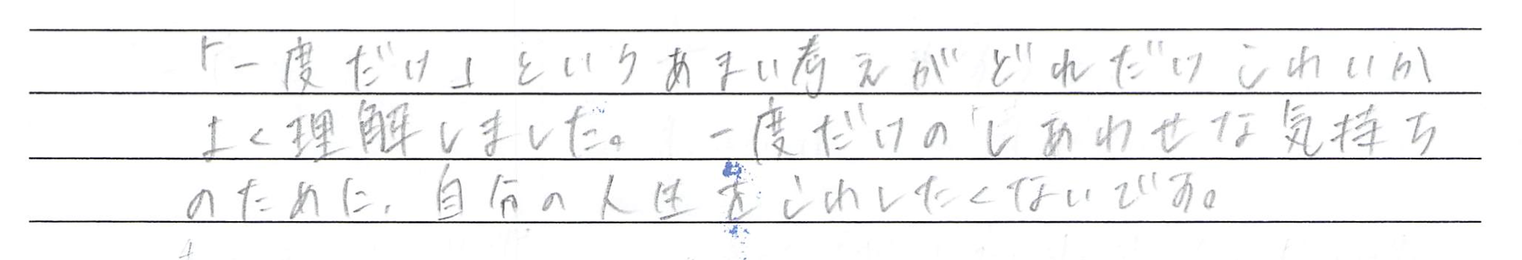 「一度だけ」というあまい考えがどれだけこわいか
よく理解しました。 一度だけのしあわせな気持ち
のために、自分の人生をこわしたくないです。